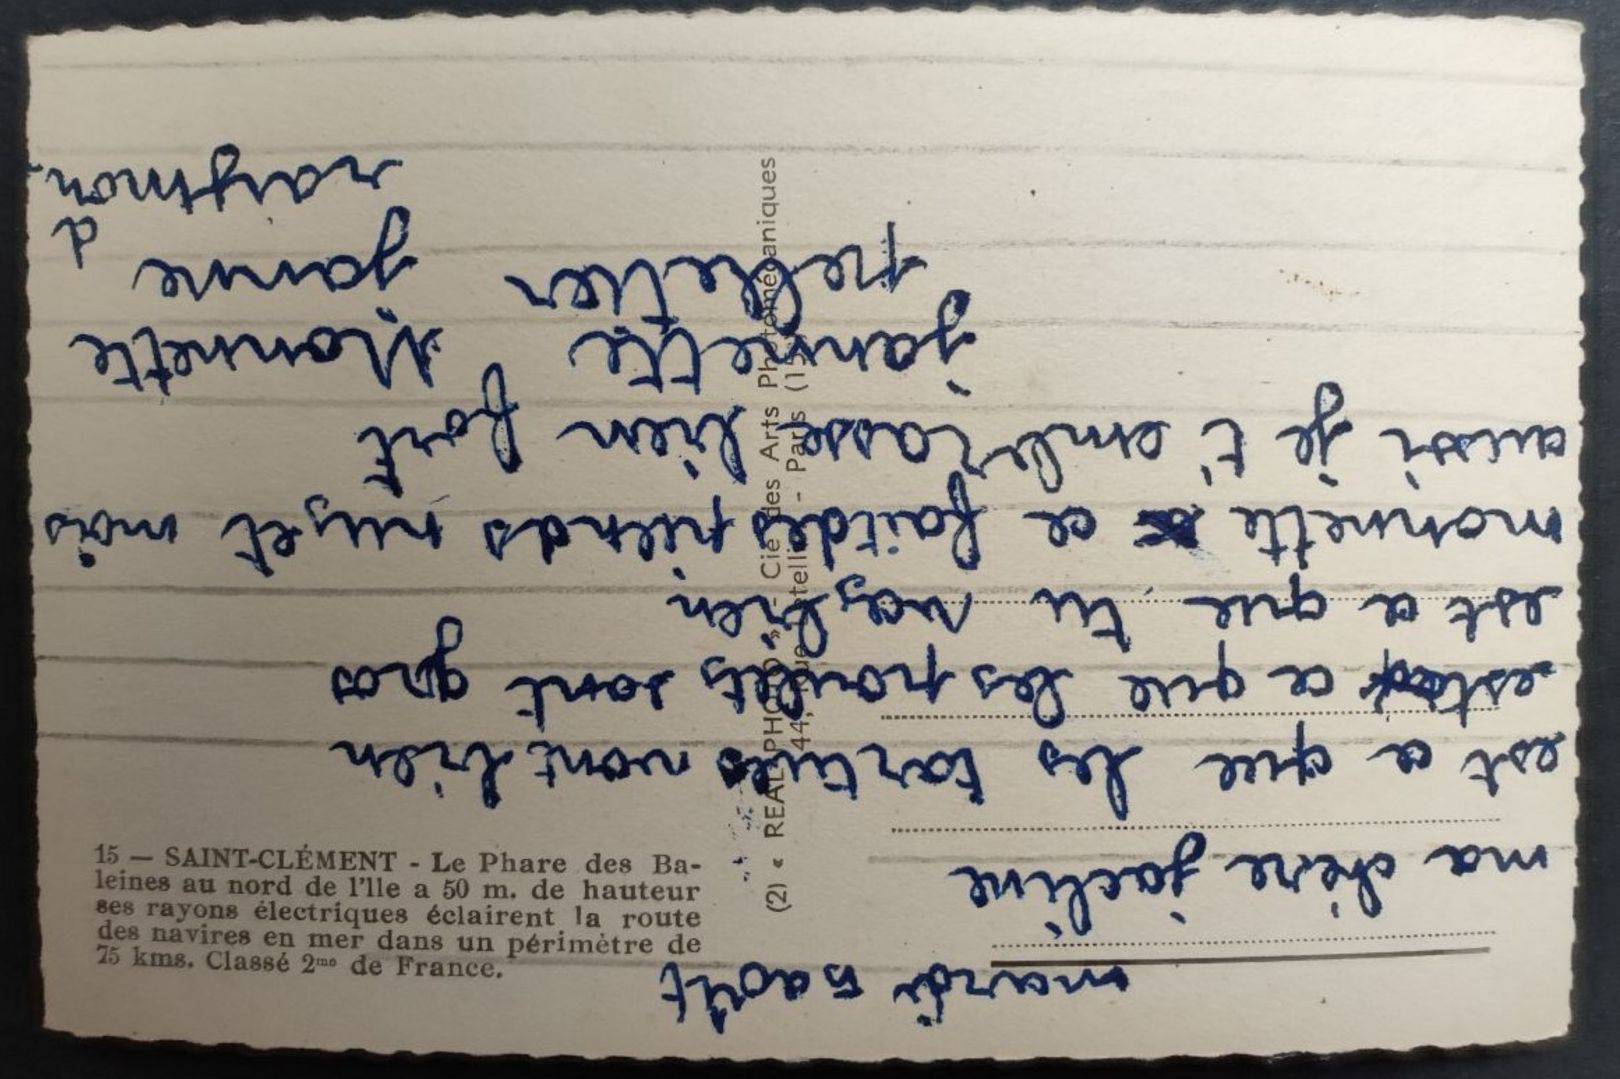 mardi 5 août
ma chère jacline
est ce que les tortues vont bien
est ce que les poulets sont gros
est ce que tu vas bien
monnette ce fait des pieds nus et mois
aussi je t'embrasse bien fort
jannette Monnette
pelletier janne
raymon
d
15 — SAINT-CLÉMENT - Le Phare des Ba-
leines au nord de l'Ile a 50 m. de hauteur
ses rayons électriques éclairent la route
des navires en mer dans un périmètre de
75 kms. Classé 2me de France.
(2) « REAL-PHOTO » - Cie des Arts Photomécaniques
44, rue Letellier - Paris (15